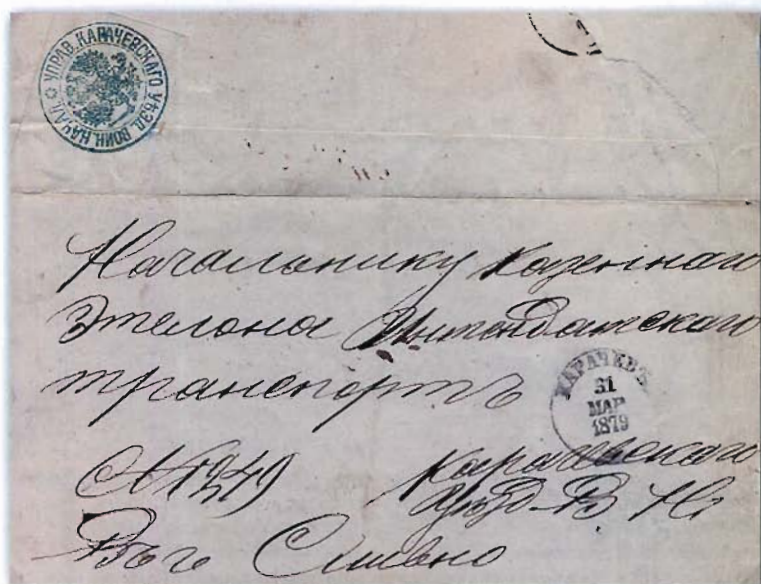 УПРАВ. КАРАЧЕВСКАГО УѢЗД. ВОИН. НАЧАЛ.
Начальнику казеннаго
Этелона Интендатскаго
транспортъ
КАРАЧЕВЪ
31
МАР.
1879
Карачевскаго
Уѣзд. В Н
Въ г Сливно